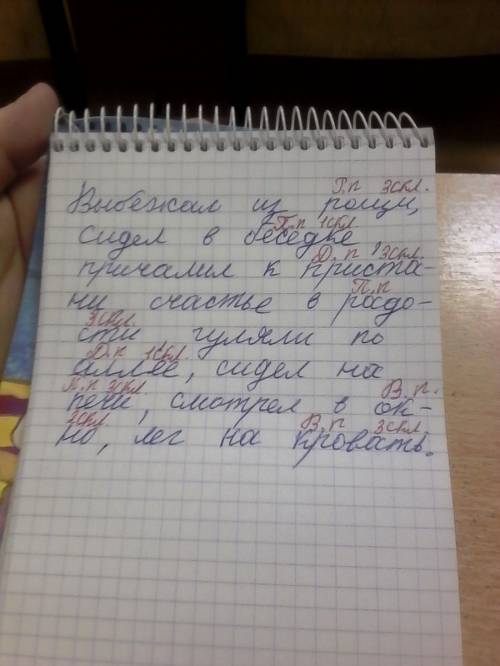 Р.п 3скл.
Выбежал из рощи,
П.п 1скл
сидел в беседке,
Д.п 3скл.
причалил к приста-
П.п
ни счастье в радо-
3скл.
сти гуляли по
Д.п 1скл.
аллее, сидел на
П.п 3скл. В.п.
печи, смотрел в ок-
3скл В.п 3скл.
но, лег на кровать.